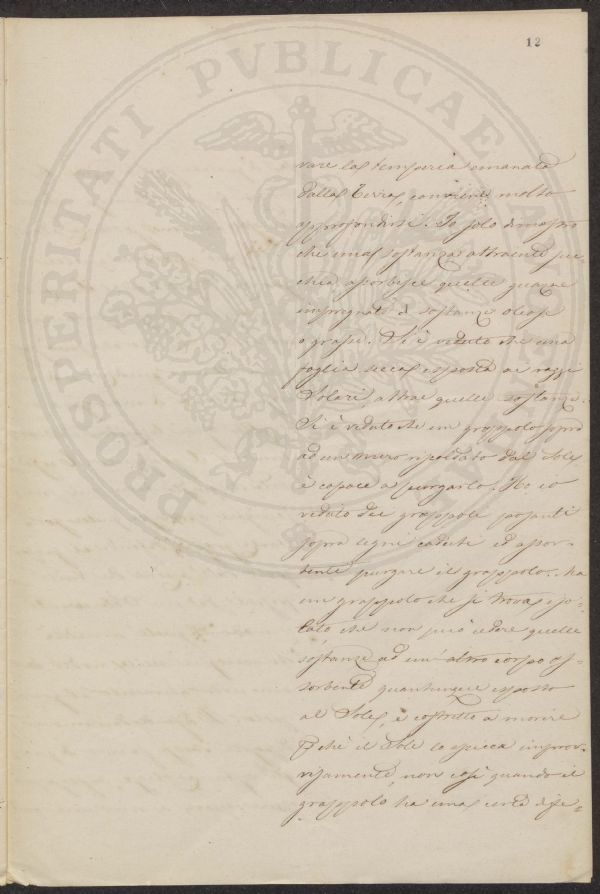 12
PROSPERITATI PVBLICAE
vare la temperia emanata
dalla Terra, conviene molto
approfondire. Io solo dimostro
che una sostanza attraente
assorbisce quelle
impregnate di sostanze oleose
o grasse. Si è veduto che una
foglia secca esposta ai raggi
Solari attrae quelle sostanze.
Si è veduto che un grappolo sopra
ad un muro riscaldato dal Sole,
è capace a purgarlo. Ho io
veduto dei grappoli posanti
sopra legni caduti ed assor-
bente purgare il grappolo. Ma
un grappolo che si trova iso-
lato, che non può cedere quelle
sostanze ad un' altro corpo as-
sorbente quantunque esposto
al Sole, è costretto a morire
pchè il Sole lo spicca improv-
visamente, non così quando il
grappolo ha una certa dife-